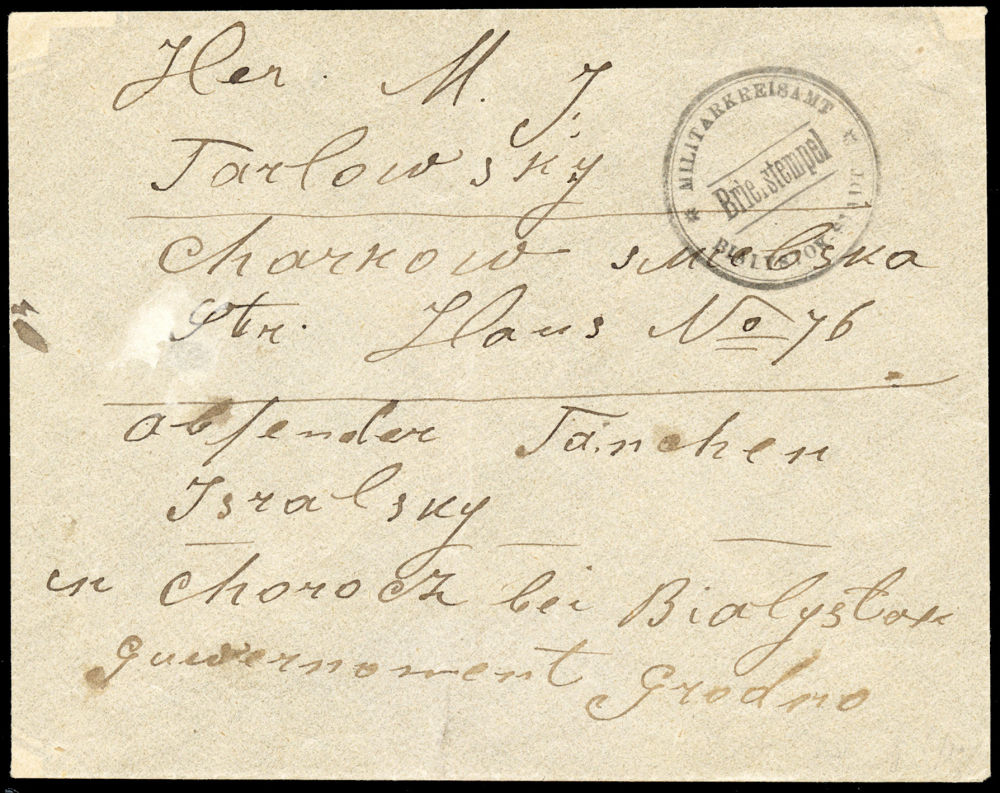 Her. M. J.
Tarlowsky
Charkow smielska
Str. Haus No 76
absender Tanchen
Isralsky
in Chorocz bei Bialystok
Guwernoment Grodno
MILITÄRKREISAMT
Briefstempel
BIALYSTOK